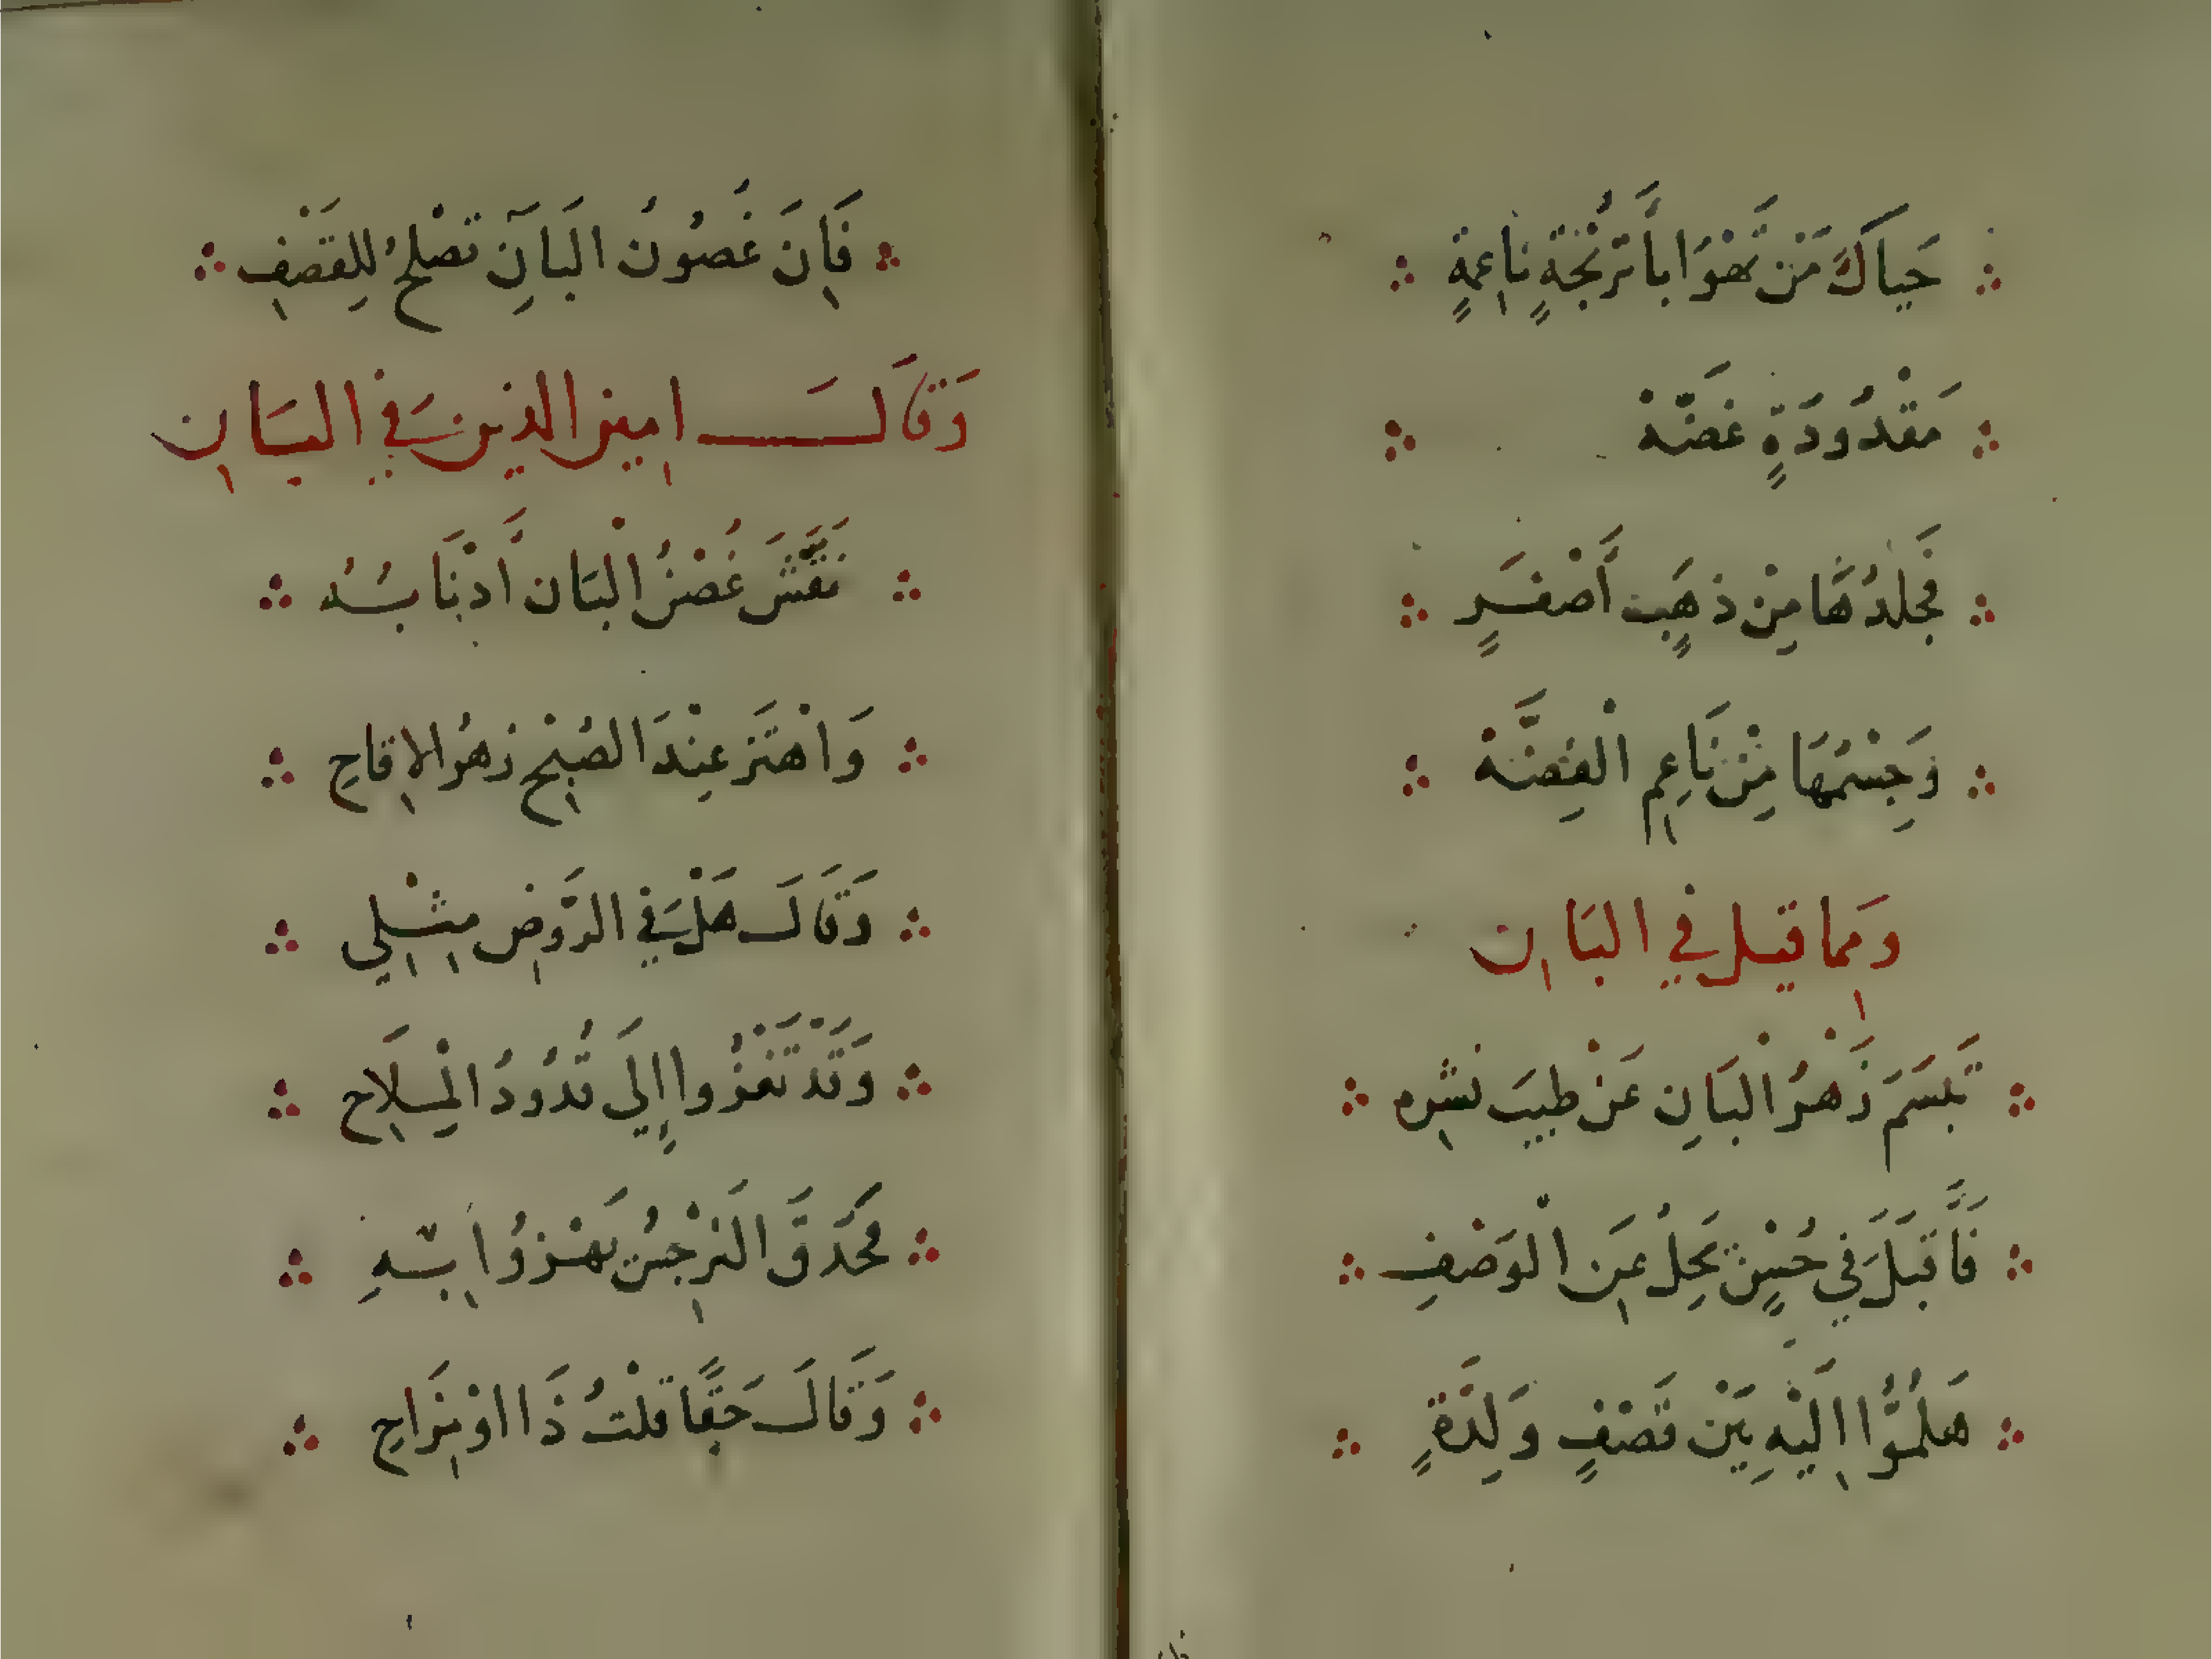 حَياكَ مَنْ تَهْوَا بأَتْرُنْجَةٍ ناعِمةٍ
مَقْدُودَةٍ غَضَّهْ
فَجِلدُهَا مِنْ ذهَبٍ أَصْفَرٍ
وَجِسْمُهَا مِنْ نَاعِمِ الْفِضَّهْ
وَمما قيل في البَان
تَبَسَمَ زَهْرُ الْبَانِ عَنْ طيبَ نشرِه
فَأَقبَلَ في حُسْنٍ يَجِلُ عَنِ الْوَصْفِ
هَلمُّوا اِلَيْهِ بَيْنَ قَصْفٍ وَلِذَةٍ
فَاِنَ غُصُونُ البَانِ تصْلحُ لِلقَصْفِ
وَقَالَ امين الدين في البَان
نَفَّشَ غُصْنُ الْبَان أَذْنَابَهُ
وَاهْتَزَ عِنْدَ الصُبْحِ زهرُ الاقاحِ
وَقَالَ هَلْ في الرَّوضِ مِثْلِي
وَقَدْ تَعْزُوا إِلى قُدُودُ الْمِلَاحِ
فَحَدَقَ النَرْجِسُ يَهْزوُا بِهِ
وَقَالَ حَقًا قلْتُ ذَا اوْ مِزَاحِ